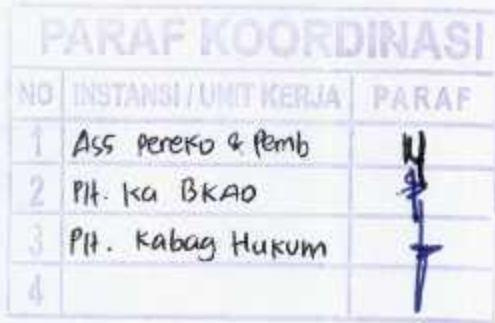 PARAF KOORDINASI
NO INSTANSI / UNIT KERJA PARAF
1 Ass Pereko & Pemb
2 Plt. Ka BKAD
3 Plt. Kabag Hukum
4